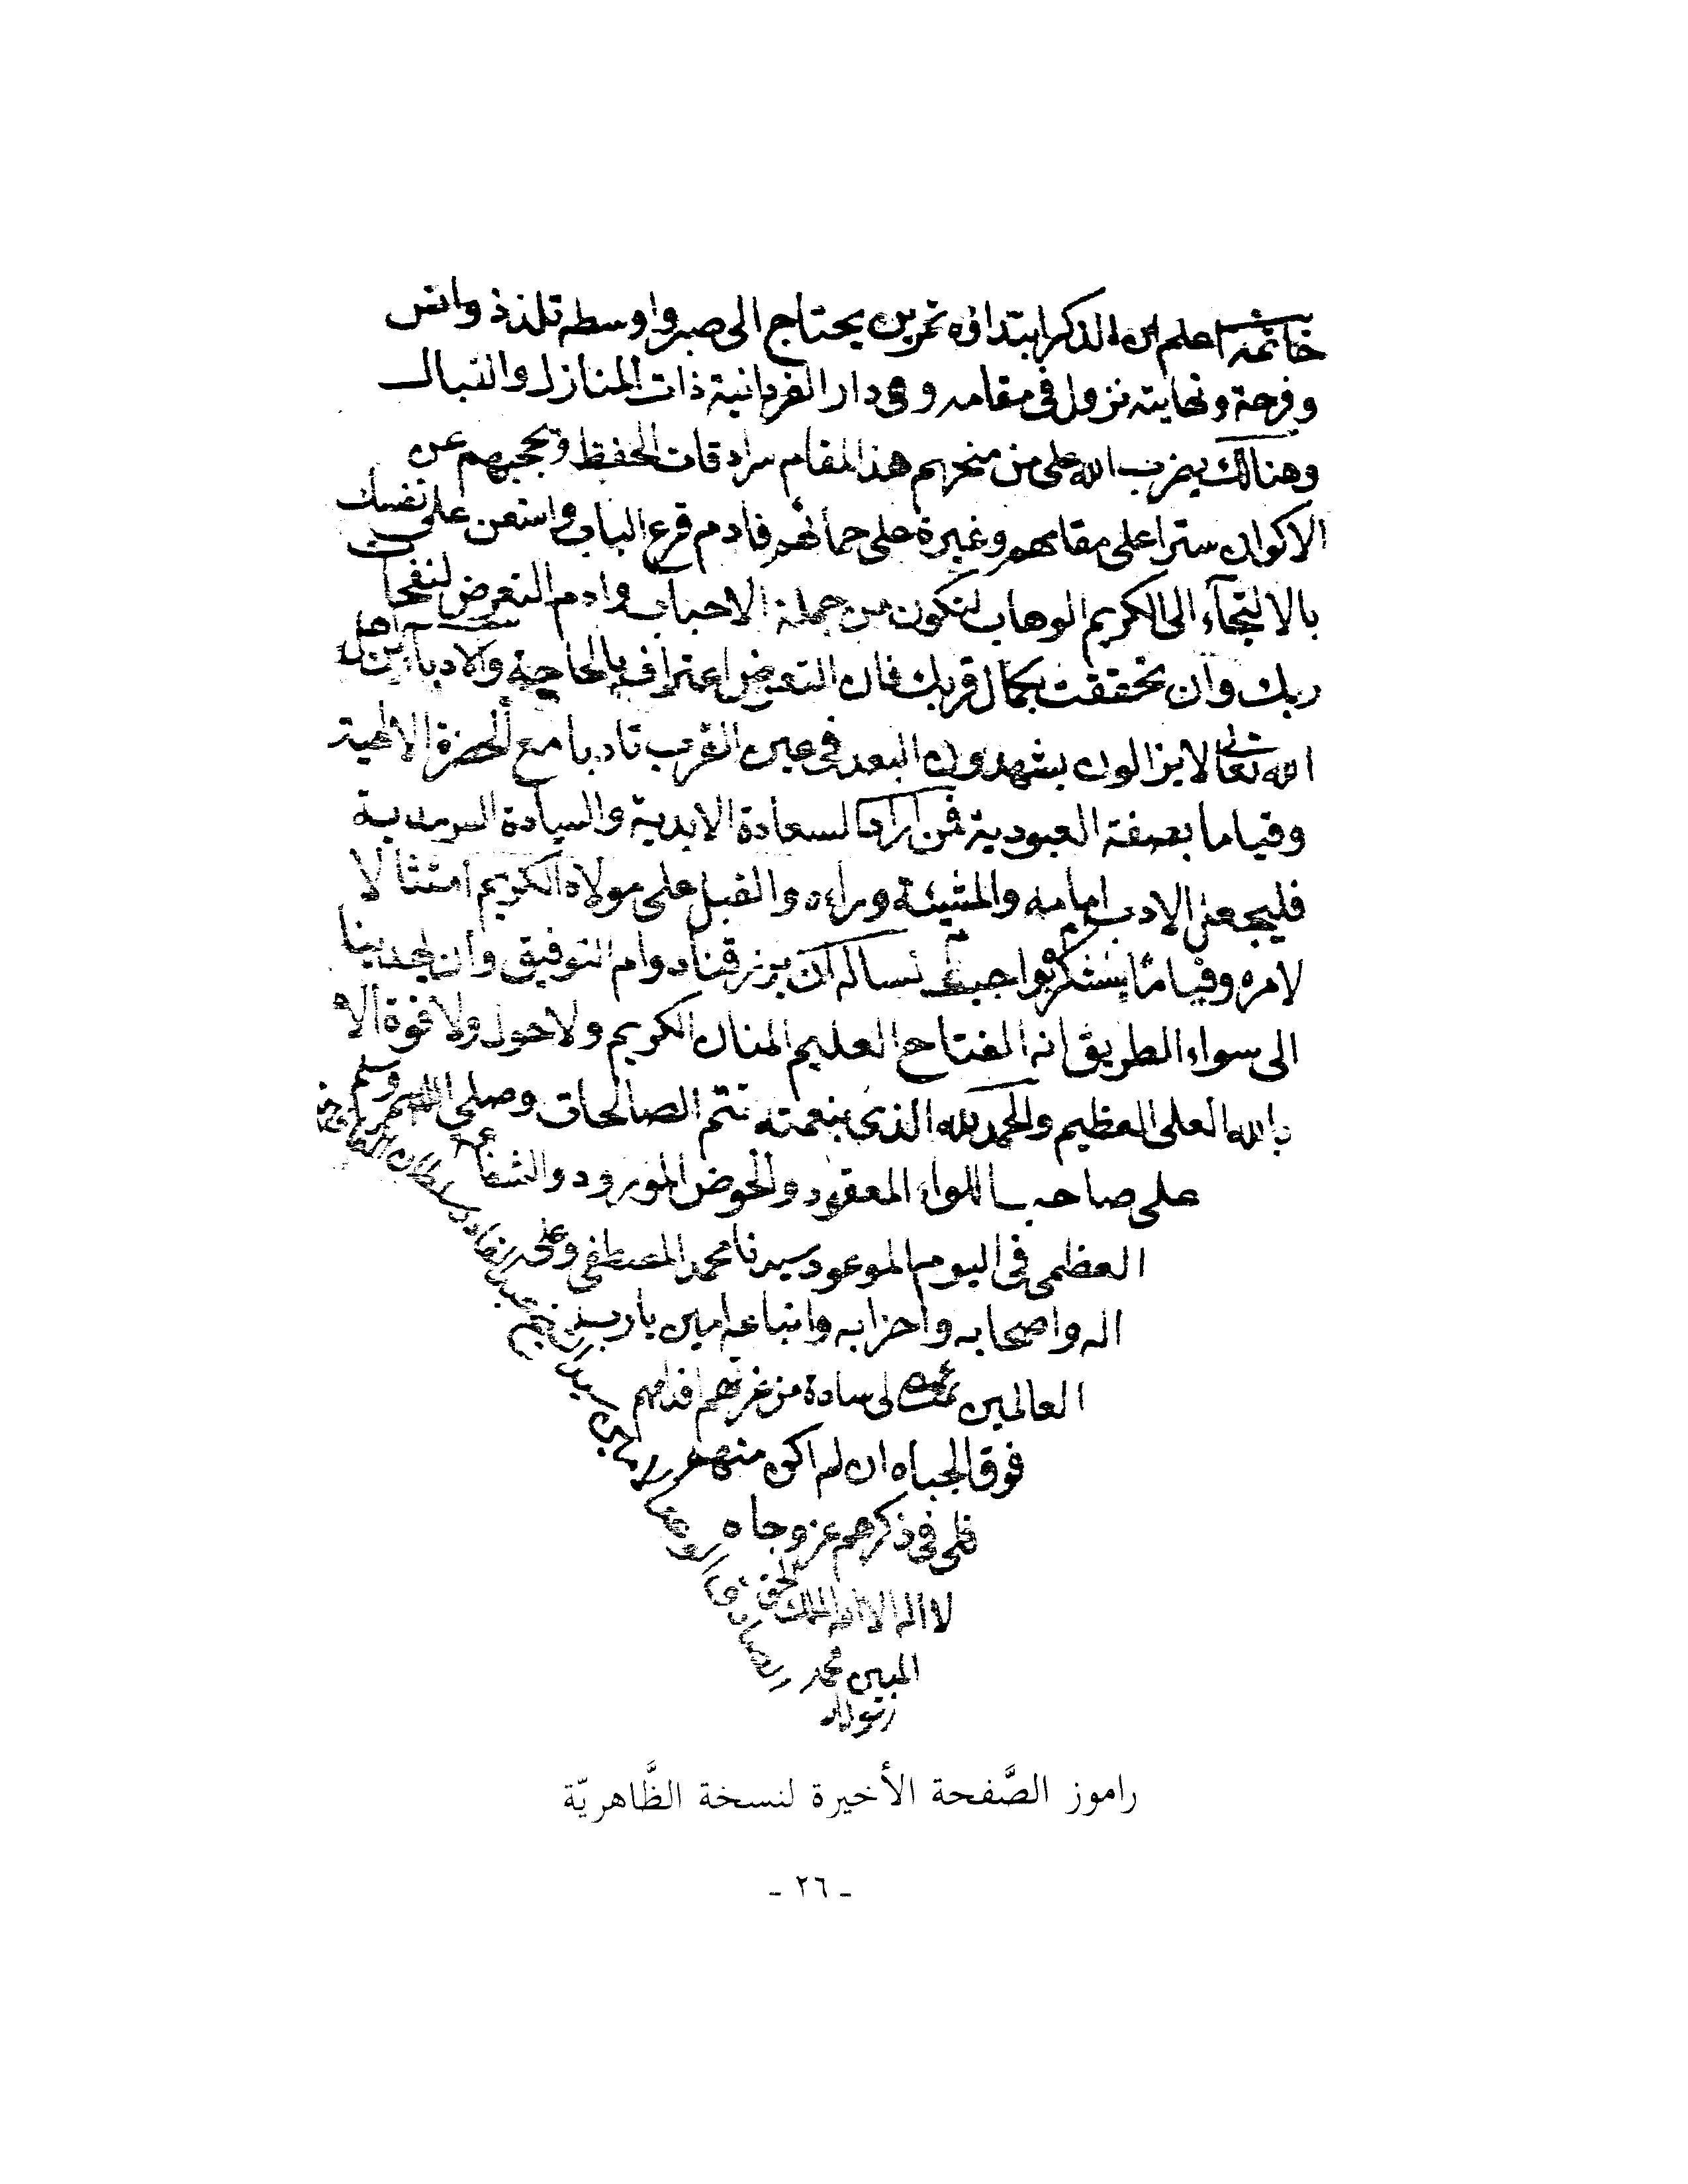 خاتمة اعلم ان الذكر ابتداؤه تمرين يحتاج الى صبر واوسطه تلذذ وانس
وفرحة ونهايته نزول فى مقامه وهى دار الفردانية ذات المنازل والنبال
وهنالك يضرب الله على من منحهم هذا المقام سرادقات الحفظ ويحجبهم عن
الاكوان سترا على مقامهم وغيرة على حمائهم فادم قرع الباب واستعن على نفسك
بالالتجآء الى الكريم الوهاب لتكون من جملة الاحباب وادم التعرض لنفحات
ربك وان تحققت بكمال قربك فان التعرض اعتراف بالحاجة والادباء من اهل
الله تعالى لا يزالون يشهدون البعد فى عين القرب تادبا مع الحضرة الالهية
وقياما بصفة العبودية فمن اراد السعادة الابدية والسيادة السرمدية
فليجعل الادب امامه والمشيئة وراءه والقبل على مولاه الكريم امتثالا
لامره وقياما بشكر واجب نساله ان يرزقنا دوام التوفيق وان يهدينا
الى سواء الطريق انه الفتاح العليم المنان الكريم ولا حول ولا قوة الا
بالله العلى العظيم والحمد لله الذى بنعمته تتم الصالحات وصلى الله وسلم
على صاحب اللواء المعقود والحوض المورود والشفاعة
العظمى فى اليوم الموعود سيدنا محمد المصطفى وعلى
اله واصحابه واحزابه واتباعه امين يارب
العالمين تمت لى سادة من عزهم اقدامهم
فوق الجباه ان لم اكن منهم
فلى فى ذكرهم عز وجاه
لا اله الا الله الملك الحق
المبين محمد
رسول الله
الصادق الوعد الامين
راموز الصَّفحة الأخيرة لنسخة الظَّاهريّة
ـ ٢٦ ـ